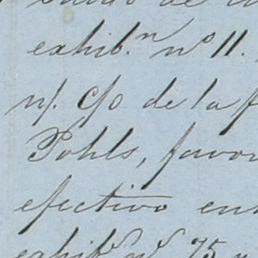 exhib.n nº 11.
n/. c/o de la f
Pohls, favor
efectivo en
exhib.n nº 75